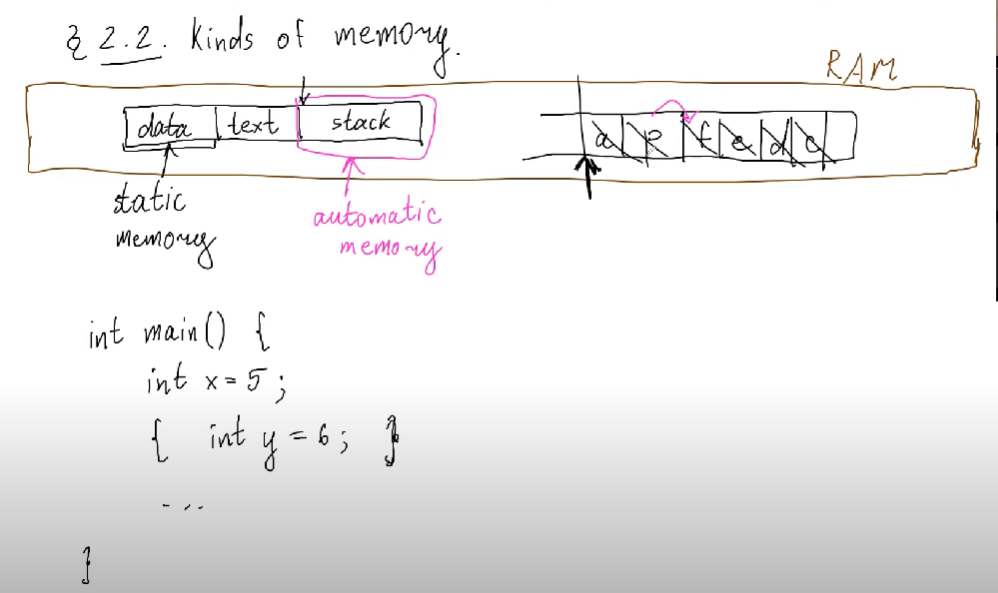 § 2.2. Kinds of memory.
RAM
data text stack
a e f e d c
static
memory
automatic
memory
int main() {
int x = 5 ;
{ int y = 6 ; }
...
}